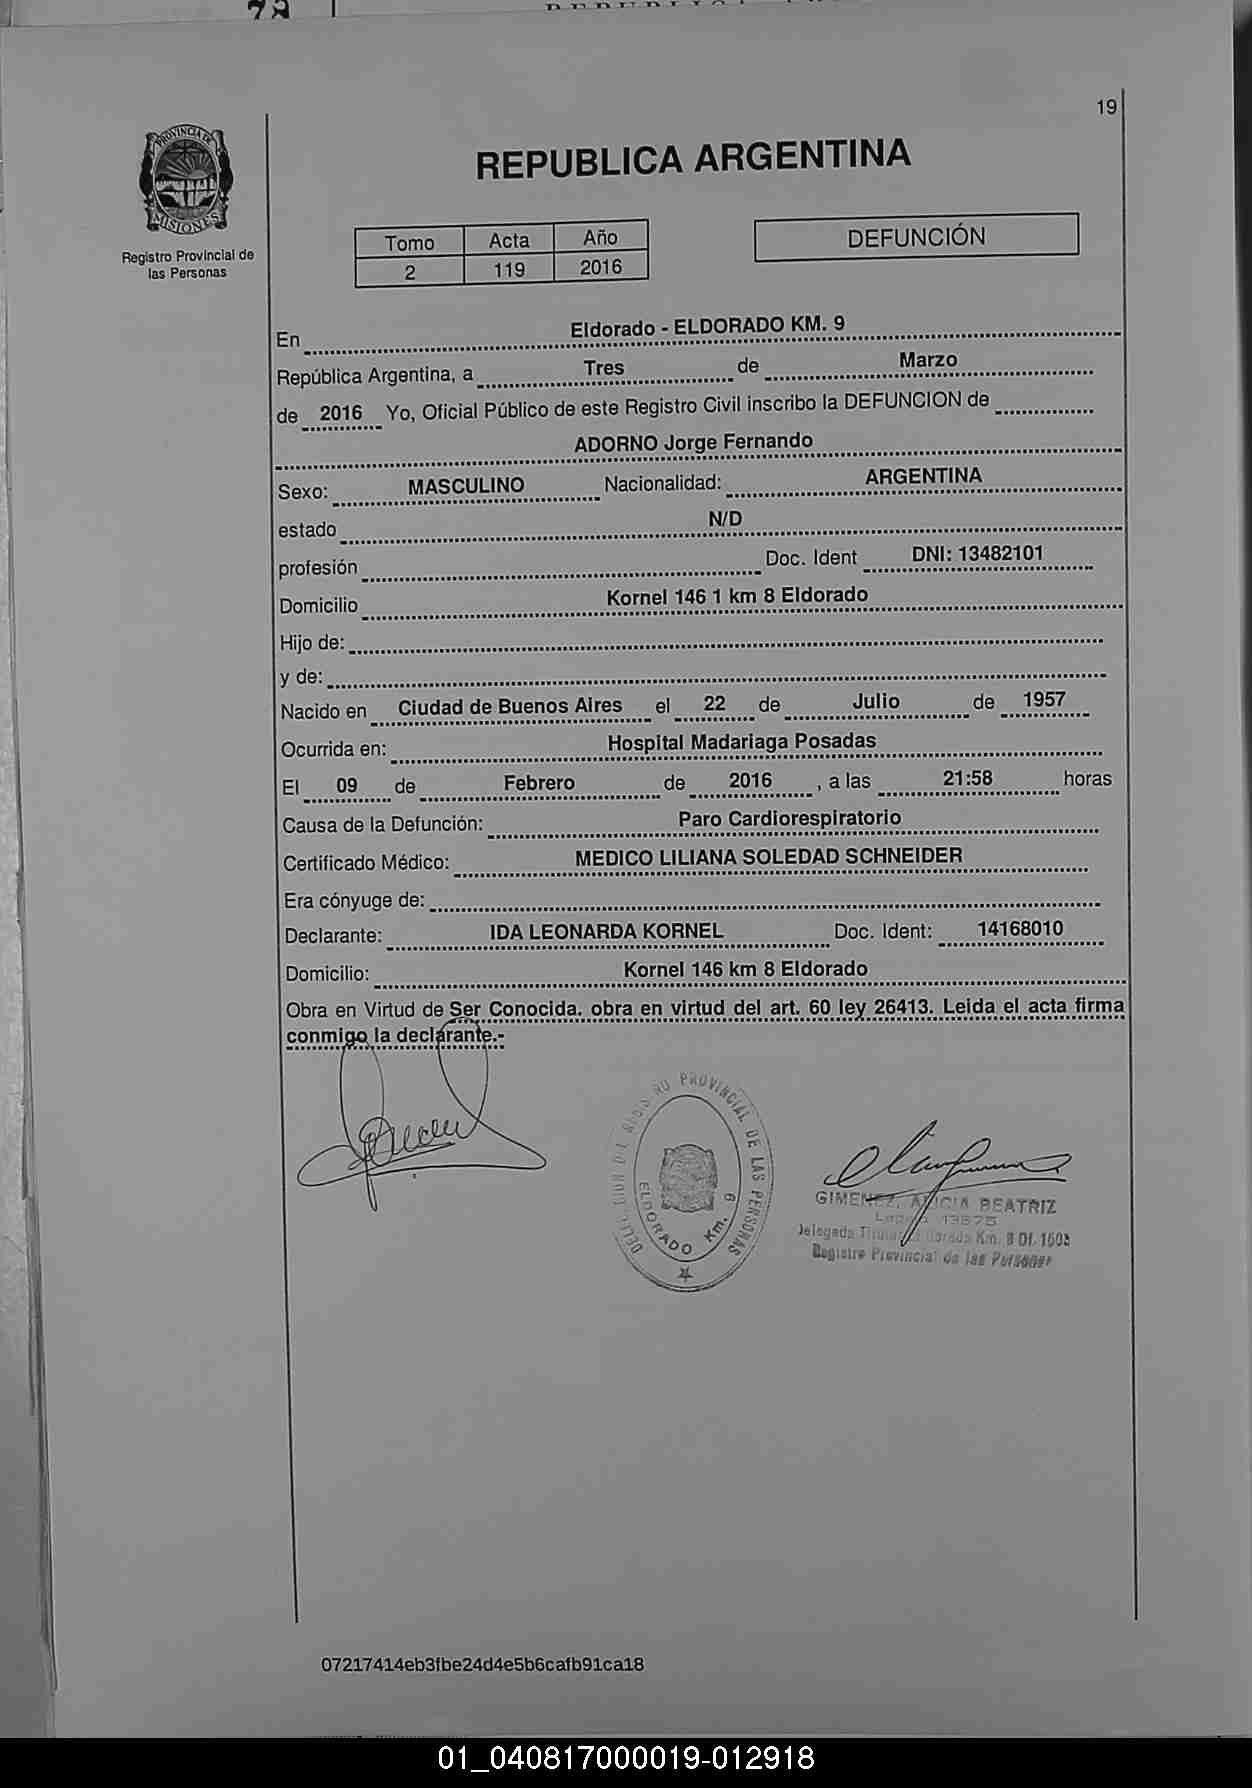 19
PROVINCIA DE
MISIONES
Registro Provincial de
las Personas
REPUBLICA ARGENTINA
Tomo Acta Año
2 119 2016
DEFUNCIÓN
En Eldorado - ELDORADO KM. 9
República Argentina, a Tres de Marzo
de 2016 Yo, Oficial Público de este Registro Civil inscribo la DEFUNCION de
ADORNO Jorge Fernando
Sexo: MASCULINO Nacionalidad: ARGENTINA
estado N/D
profesión Doc. Ident DNI: 13482101
Domicilio Kornel 146 1 km 8 Eldorado
Hijo de:
y de:
Nacido en Ciudad de Buenos Aires el 22 de Julio de 1957
Ocurrida en: Hospital Madariaga Posadas
El 09 de Febrero de 2016 , a las 21:58 horas
Causa de la Defunción: Paro Cardiorespiratorio
Certificado Médico: MEDICO LILIANA SOLEDAD SCHNEIDER
Era cónyuge de:
Declarante: IDA LEONARDA KORNEL Doc. Ident: 14168010
Domicilio: Kornel 146 km 8 Eldorado
Obra en Virtud de Ser Conocida. obra en virtud del art. 60 ley 26413. Leida el acta firma
conmigo la declarante.-
PROVINCIAL DE LAS PERSONAS
ELDORADO Km. 9
GIMENEZ, ALICIA BEATRIZ
Registro Provincial de las Personas
07217414eb3fbe24d4e5b6cafb91ca18
01_040817000019-012918